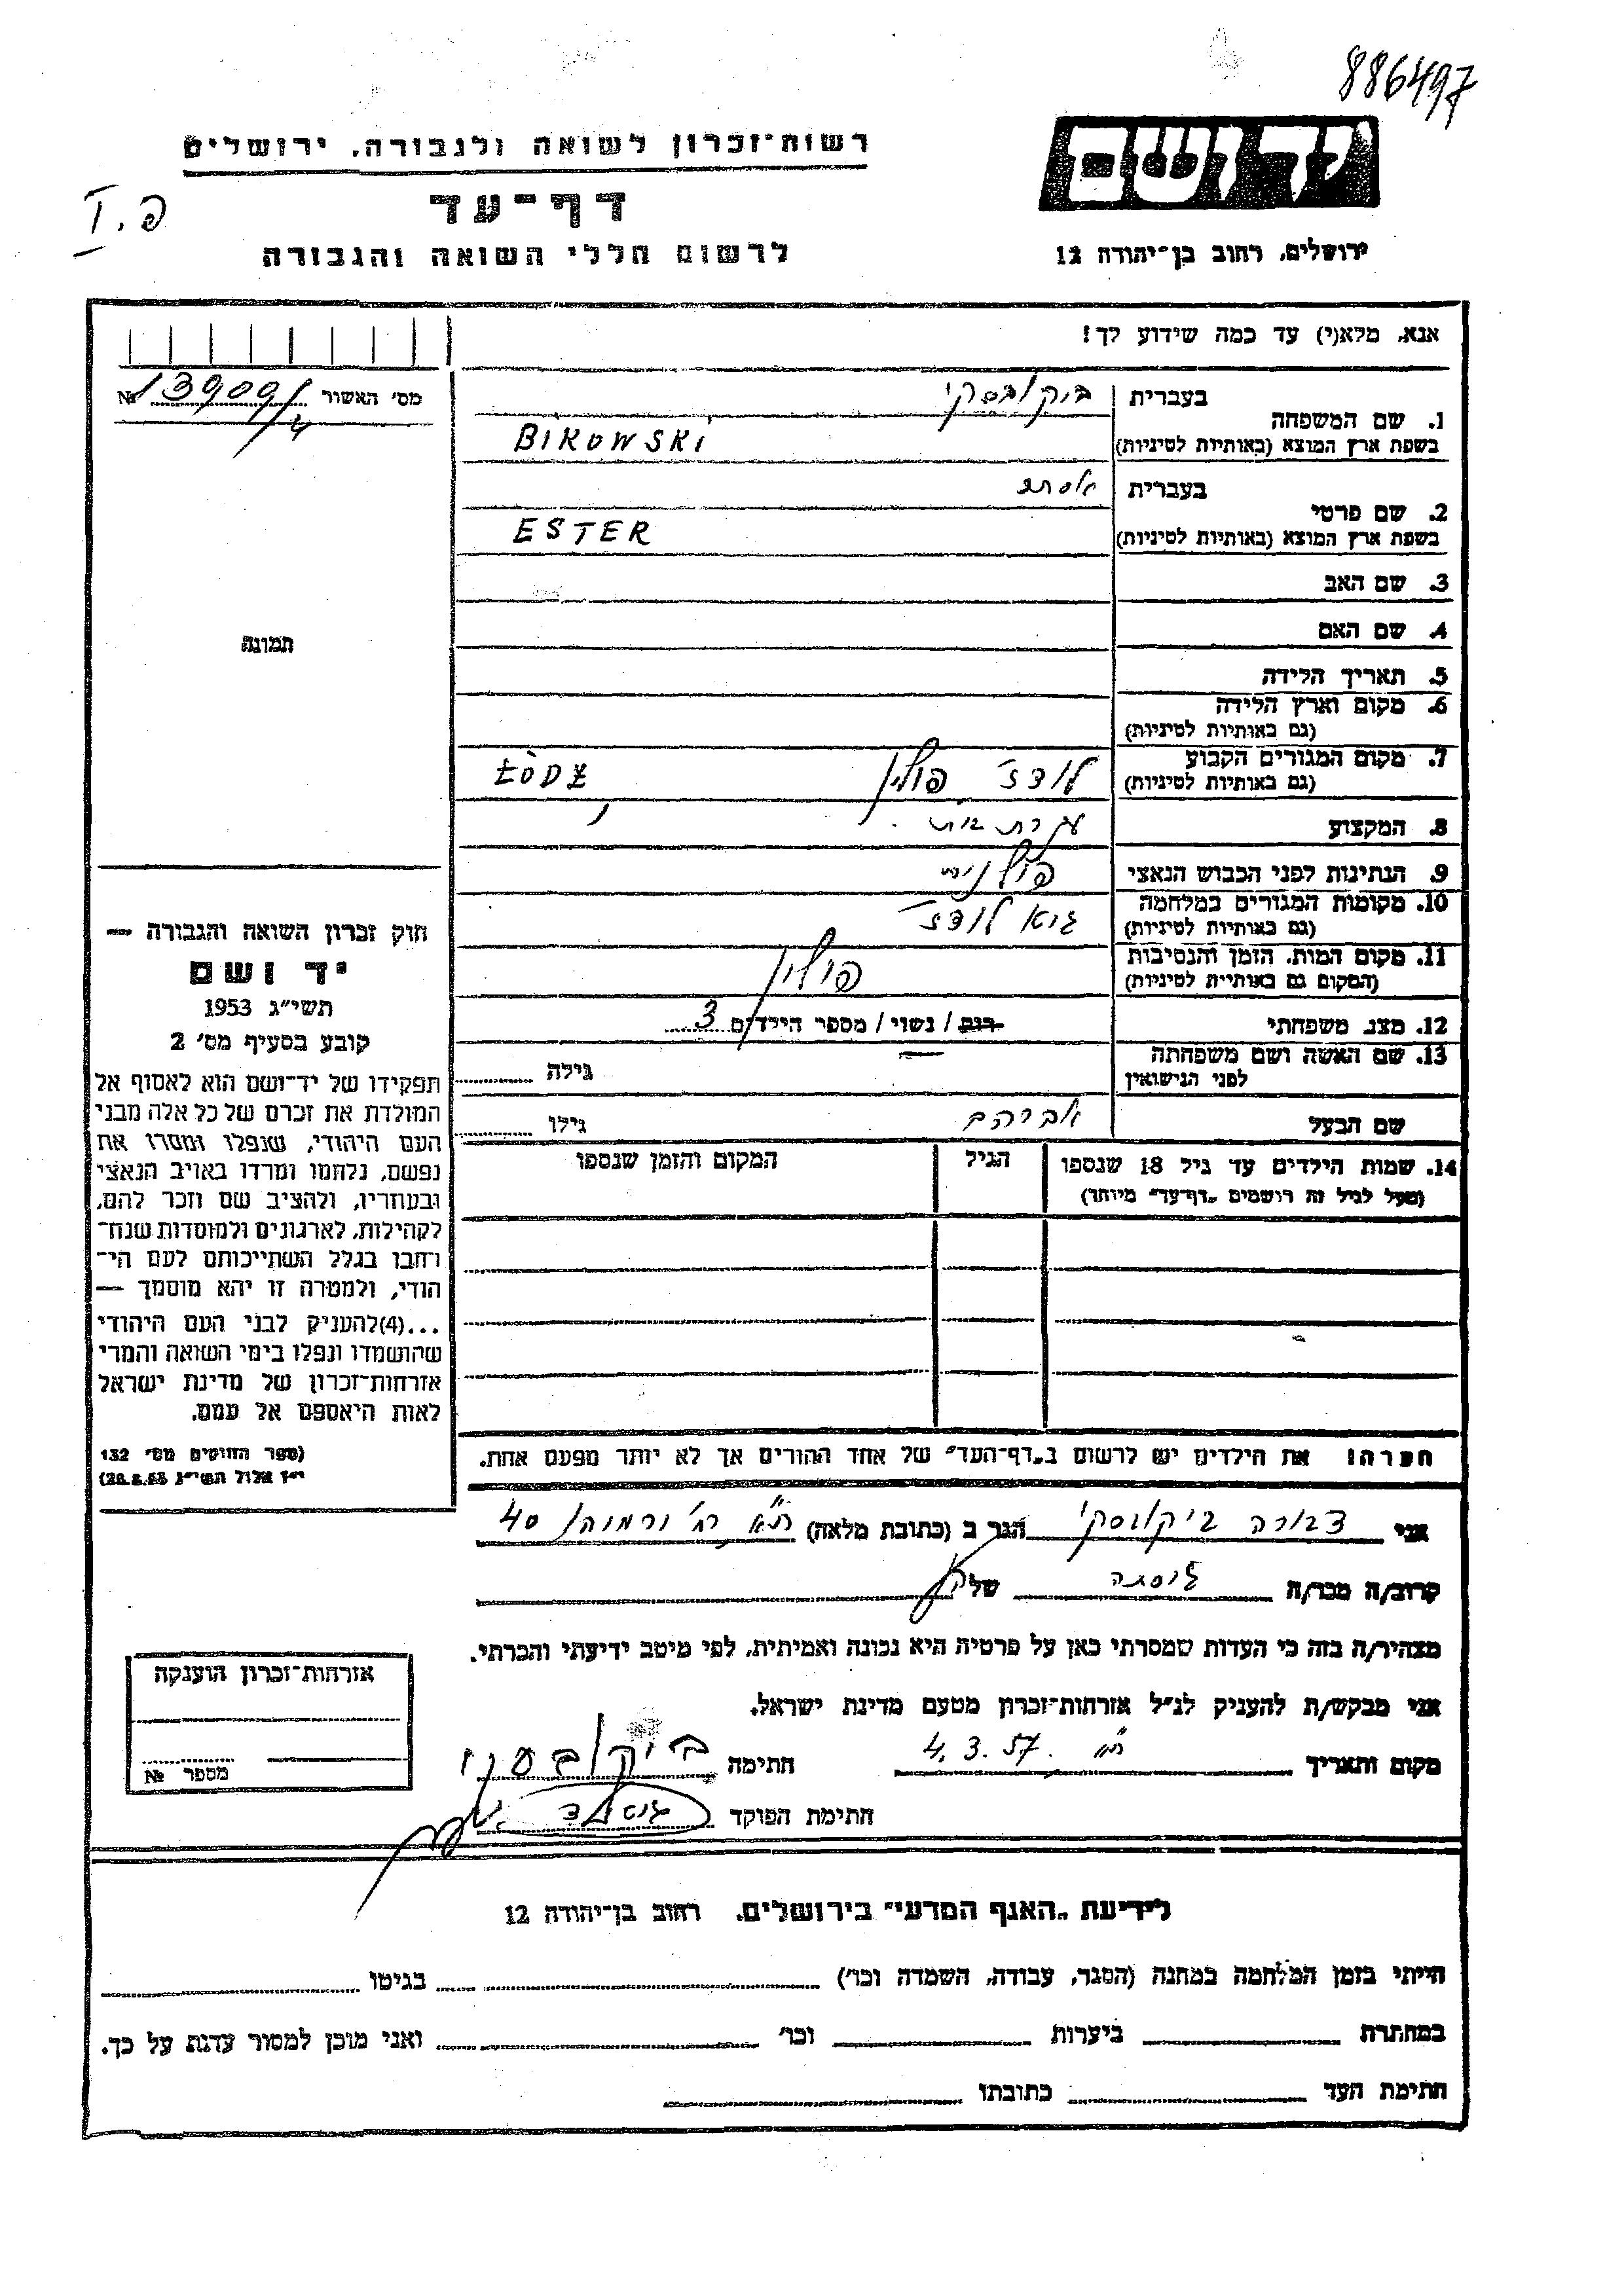 886497
רשות־זכרון לשואה ולגבורה, ירושלים
יד ושם
דף־עד
פ. I
לרשום חללי השואה והגבורה
ירושלים, רחוב בן־יהודה 12
אנא, מלא(י) עד כמה שידוע לך!
מס׳ האשור № 13909/4
1. שם המשפחה
בעברית ביקובסקי
בשפת ארץ המוצא (באותיות לטיניות) BIKOWSKI
2. שם פרטי
בעברית אסתר
בשפת ארץ המוצא (באותיות לטיניות) ESTER
3. שם האב
4. שם האם
תמונה
5. תאריך הלידה
6. מקום וארץ הלידה
(גם באותיות לטיניות)
7. מקום המגורים הקבוע לודז׳ פולין ŁÒDŹ
(גם באותיות לטיניות)
8. המקצוע עקרת בית
9. הנתינות לפני הכבוש הנאצי פולנית
10. מקומות המגורים במלחמה גיטו לודז׳
(גם באותיות לטיניות)
11. מקום המות, הזמן והנסיבות פולין
(המקום גם באותיות לטיניות)
12. מצב משפחתי רוק / נשוי / מספר הילדים 3
13. שם האשה ושם משפחתה
לפני הנישואין
גילה
שם הבעל אברהם גילו
14. שמות הילדים עד גיל 18 שנספו הגיל המקום והזמן שנספו
(מעל לגיל זה רושמים „דף־עד״ מיוחד)
הערה! את הילדים יש לרשום ב„דף־העד״ של אחד ההורים אך לא יותר מפעם אחת.
חוק זכרון השואה והגבורה —
יד ושם
תשי״ג 1953
קובע בסעיף מס׳ 2
תפקידו של יד־ושם הוא לאסוף אל
המולדת את זכרם של כל אלה מבני
העם היהודי, שנפלו ומסרו את
נפשם, נלחמו ומרדו באויב הנאצי
ובעוזריו, ולהציב שם וזכר להם,
לקהילות, לארגונים ולמוסדות שנח־
רבו בגלל השתייכותם לעם הי־
הודי, ולמטרה זו יהא מוסמך —
...(4)להעניק לבני העם היהודי
שהושמדו ונפלו בימי השואה והמרי
אזרחות־זכרון של מדינת ישראל
לאות היאספם אל עמם.
(ספר החוקים מס׳ 132
י״ז אלול תשי״ג 28.8.53)
אני דבורה ביקובסקי הגר ב (כתובת מלאה) ת״א רח׳ 40
קרוב/ה מכר/ה גיסתה של
מצהיר/ה בזה כי העדות שמסרתי כאן על פרטיה היא נכונה ואמיתית, לפי מיטב ידיעתי והכרתי.
אני מבקש/ת להעניק לנ״ל אזרחות־זכרון מטעם מדינת ישראל.
מקום ותאריך ת״א 4.3.57 חתימה
חתימת הפוקד
אזרחות־זכרון הוענקה
מספר №
לידיעת „האגף המדעי״ בירושלים, רחוב בן־יהודה 12
הייתי בזמן המלחמה במחנה (הסגר, עבודה, השמדה וכו׳) בגיטו
במחתרת ביערות וכו׳ ואני מוכן למסור עדות על כך.
חתימת העד כתובתו